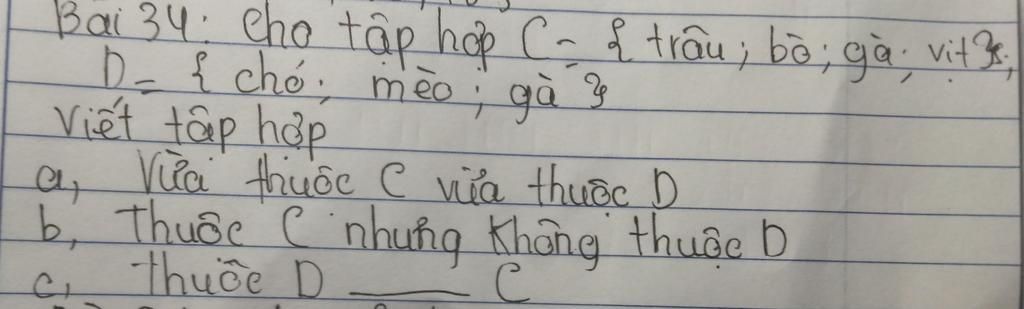 Bài 34: Cho tập hợp C = { trâu; bò; gà; vịt };
D = { chó; mèo; gà }
Viết tập hợp
a, Vừa thuộc C vừa thuộc D
b, Thuộc C nhưng không thuộc D
c, Thuộc D ___ C